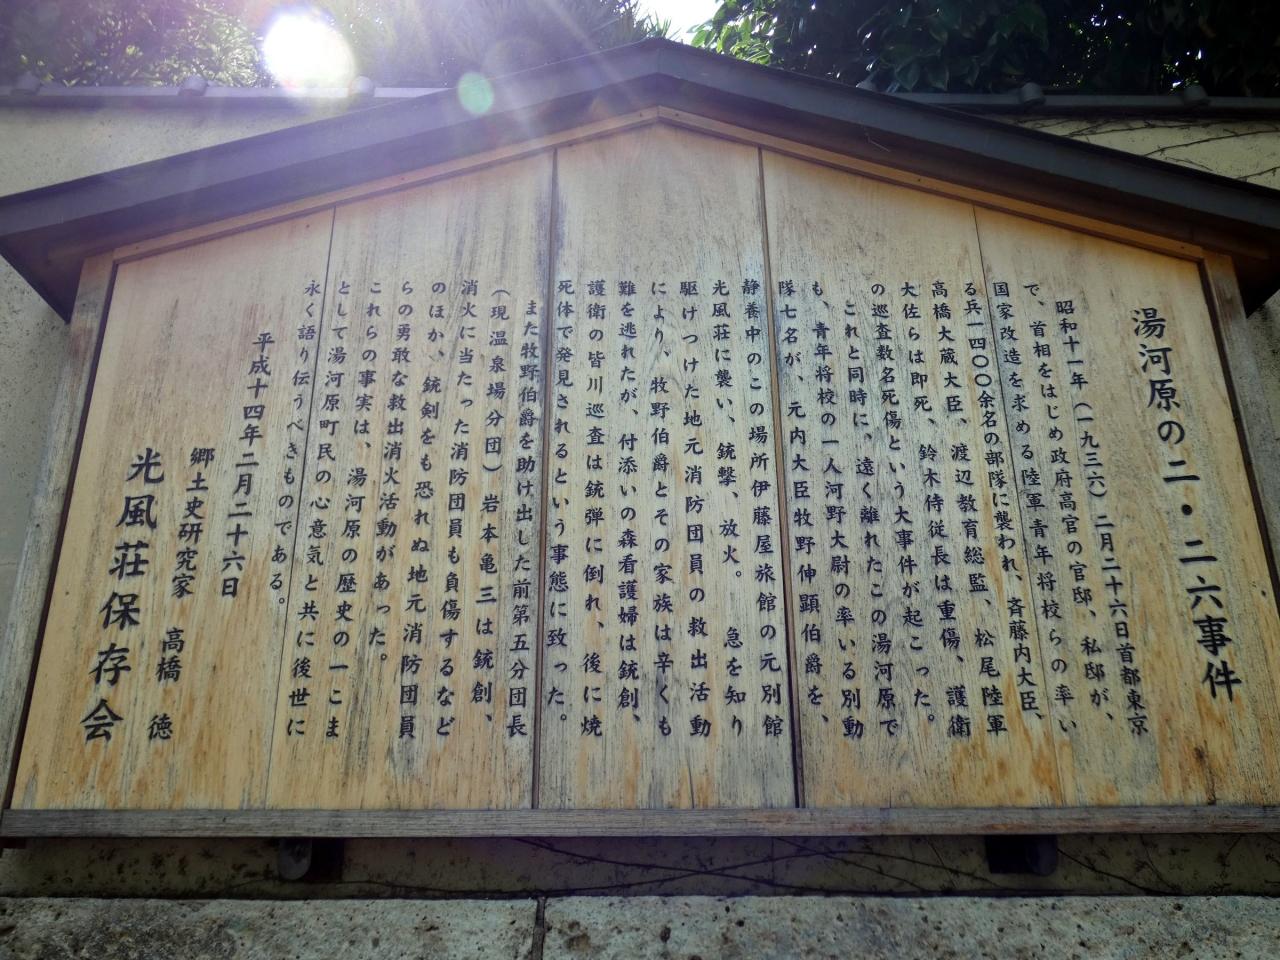 湯河原の二・二六事件
昭和十一年(一九三六)二月二十六日首都東京
で、首相をはじめ政府高官の官邸、私邸が、
国家改造を求める陸軍青年将校らの率い
る兵一四〇〇余名の部隊に襲われ、斉藤内大臣、
高橋大蔵大臣、渡辺教育総監、松尾陸軍
大佐らは即死、鈴木侍従長は重傷、護衛
の巡査数名死傷という大事件が起こった。
これと同時に、遠く離れたこの湯河原で
も、青年将校の一人河野大尉の率いる別動
隊七名が、元内大臣牧野伸顕伯爵を、
静養中のこの場所伊藤屋旅館の元別館
光風荘に襲い、銃撃、放火。 急を知り
駆けつけた地元消防団員の救出活動
により、牧野伯爵とその家族は辛くも
難を逃れたが、付添いの森看護婦は銃創、
護衛の皆川巡査は銃弾に倒れ、後に焼
死体で発見されるという事態に致った。
また牧野伯爵を助け出した前第五分団長
(現温泉場分団)岩本亀三は銃創、
消火に当たった消防団員も負傷するなど
のほか、銃剣をも恐れぬ地元消防団員
らの勇敢な救出消火活動があった。
これらの事実は、湯河原の歴史の一こま
として湯河原町民の心意気と共に後世に
永く語り伝うべきものである。
平成十四年二月二十六日
郷土史研究家 高橋 徳
光風荘保存会